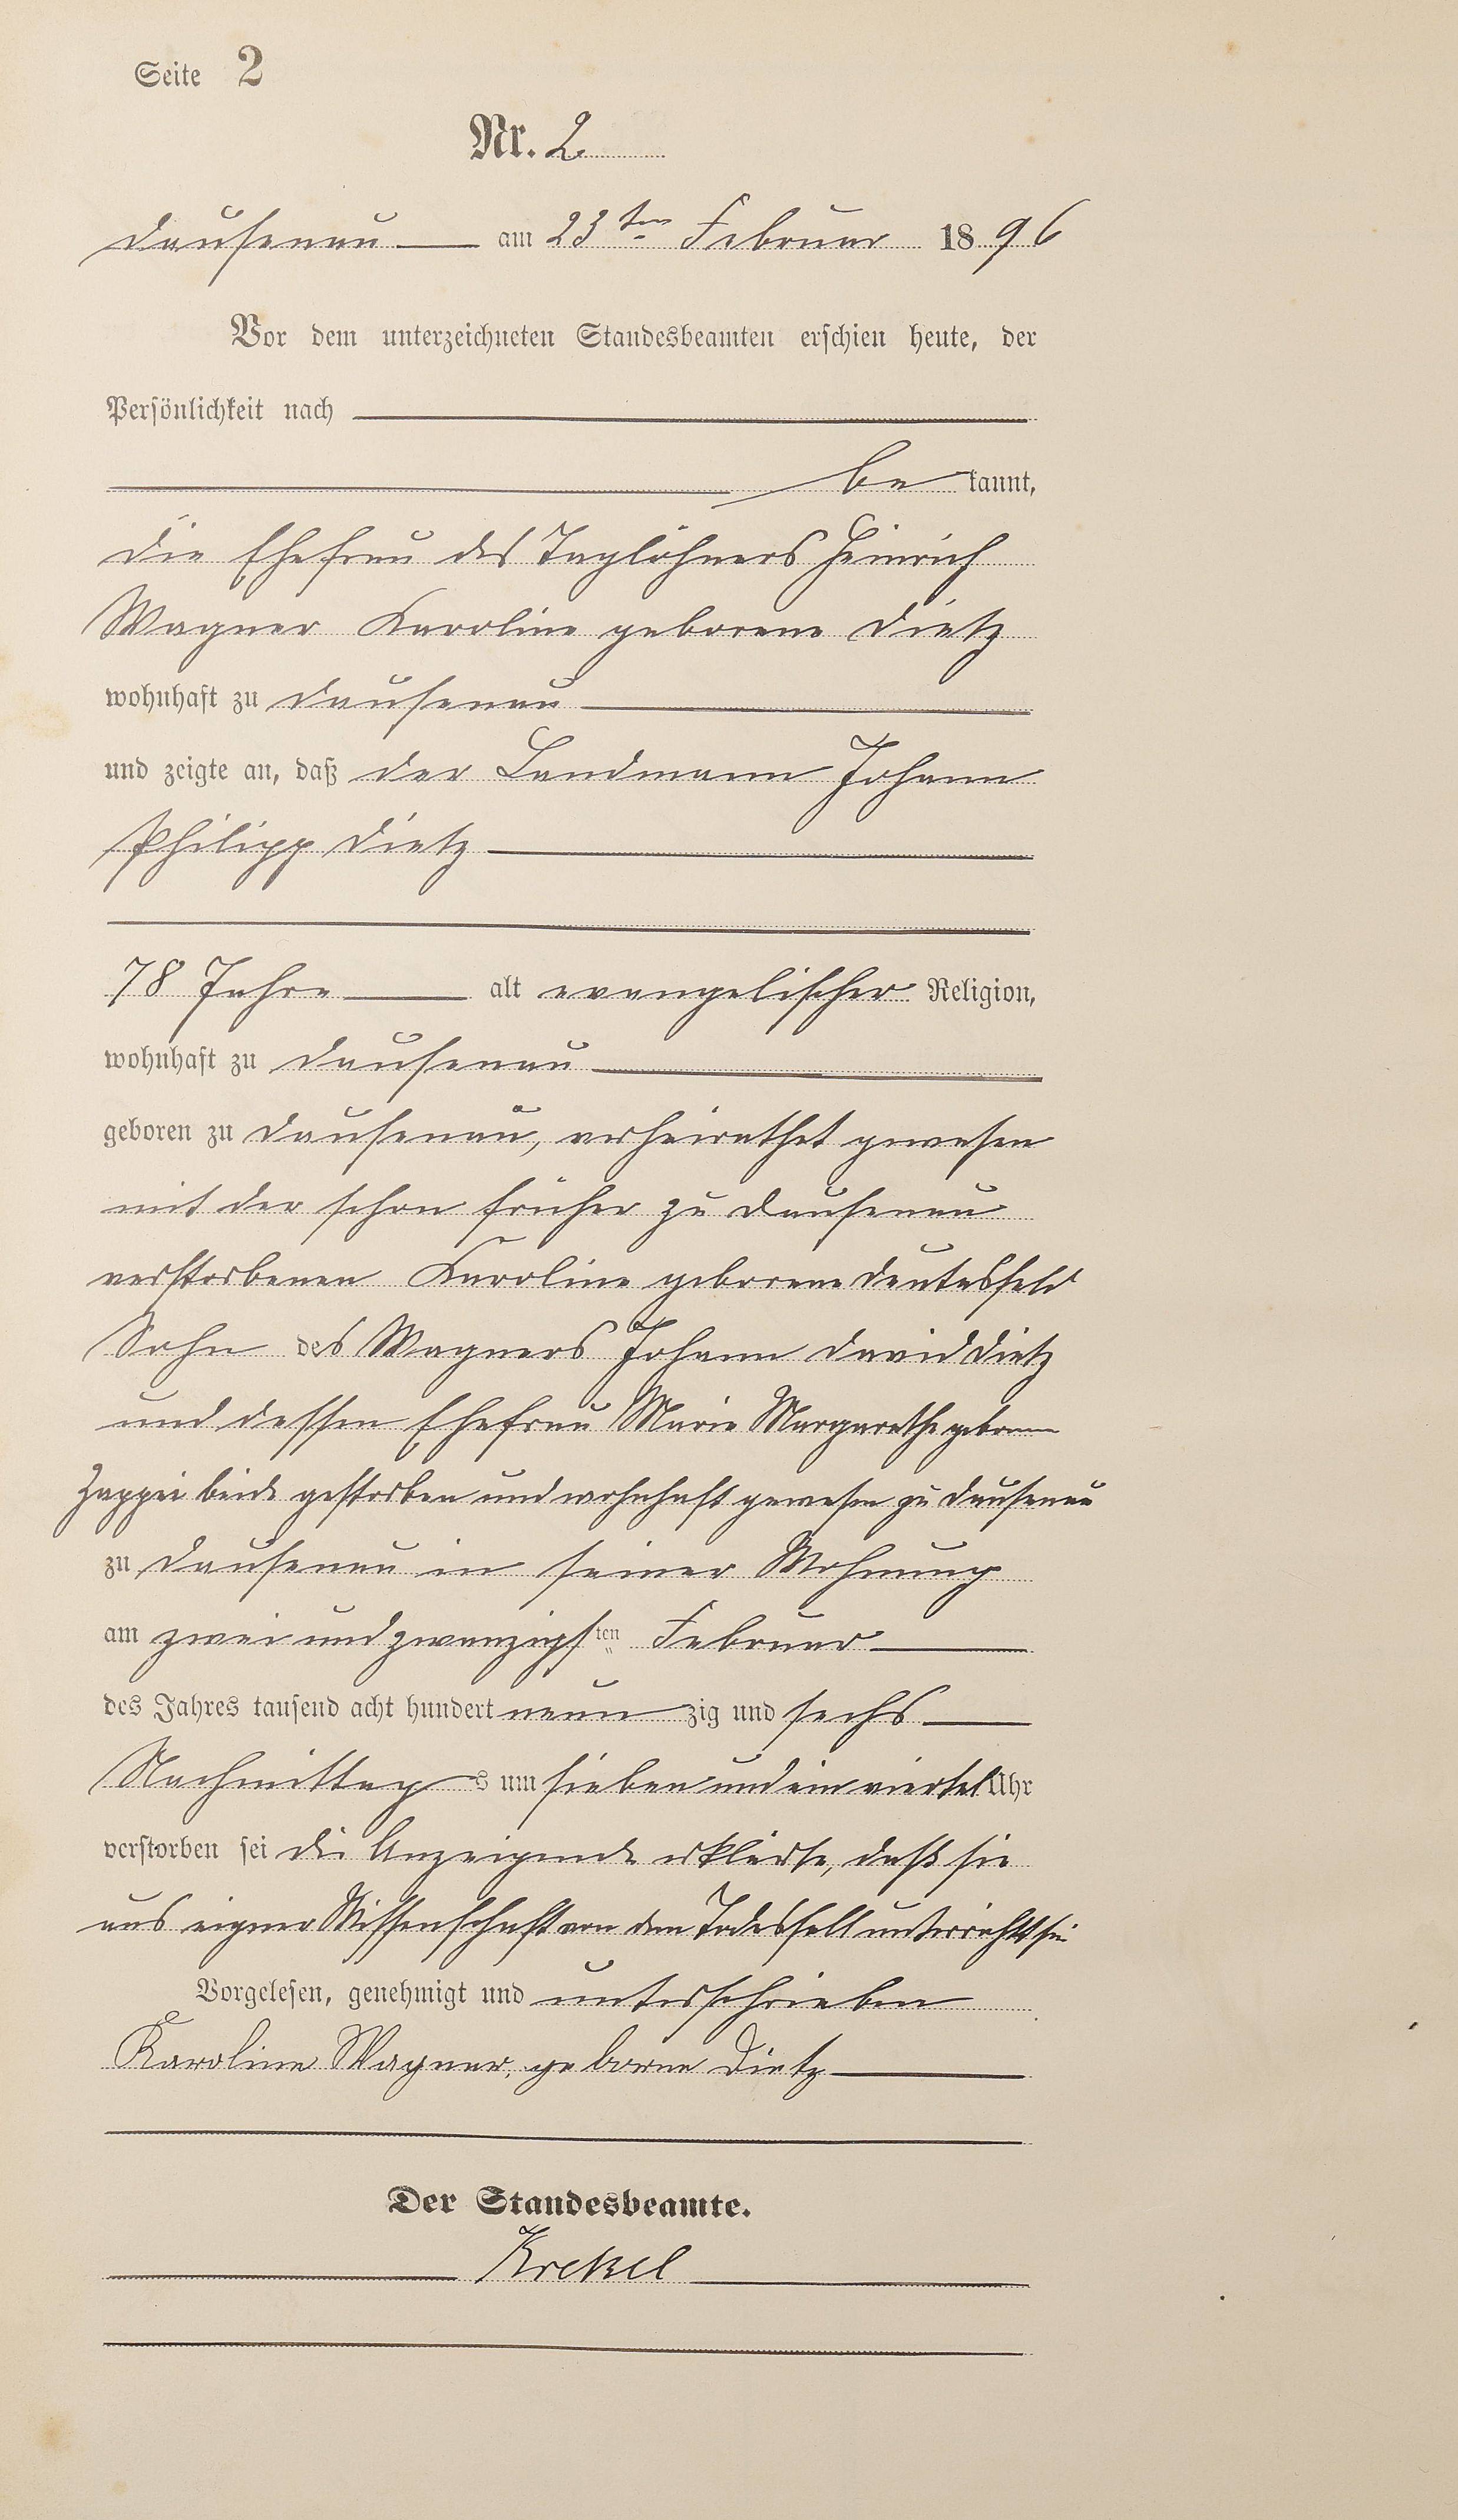 Seite 2
Nr. 2
Dausenau am 23ten Februar 1896
Vor dem unterzeichneten Standesbeamten erschien heute, der
Persönlichkeit nach
be kannt,
die Ehefrau des Taglöhners Heinrich
Wagner Karoline geborene Dietz
wohnhaft zu Dausenau
und zeigte an, daß der Landmann Johann
Philipp Dietz
78 Jahre alt evangelischer Religion,
wohnhaft zu Dausenau
geboren zu Dausenau, verheirathet gewesen
mit der schon früher zu Dausenau
verstorbenen Karoline geborene Deutesfeld
Sohn des Wagners Johann David Dietz
und dessen Ehefrau Marie Margarethe geborene
beide gestorben und wohnhaft gewesen zu Dausenau
zu Dausenau in seiner Wohnung
am zwei und zwanzigsten Februar
des Jahres tausend acht hundert neun zig und sechs
Nachmittag s um sieben und ein viertel Uhr
verstorben sei die Anzeigende erklärte, daß sie
aus eigner Wissenschaft von dem Todesfall unterrichtet sei
Vorgelesen, genehmigt und unterschrieben
Karoline Wagner, geborne Dietz
Der Standesbeamte.
Krekel